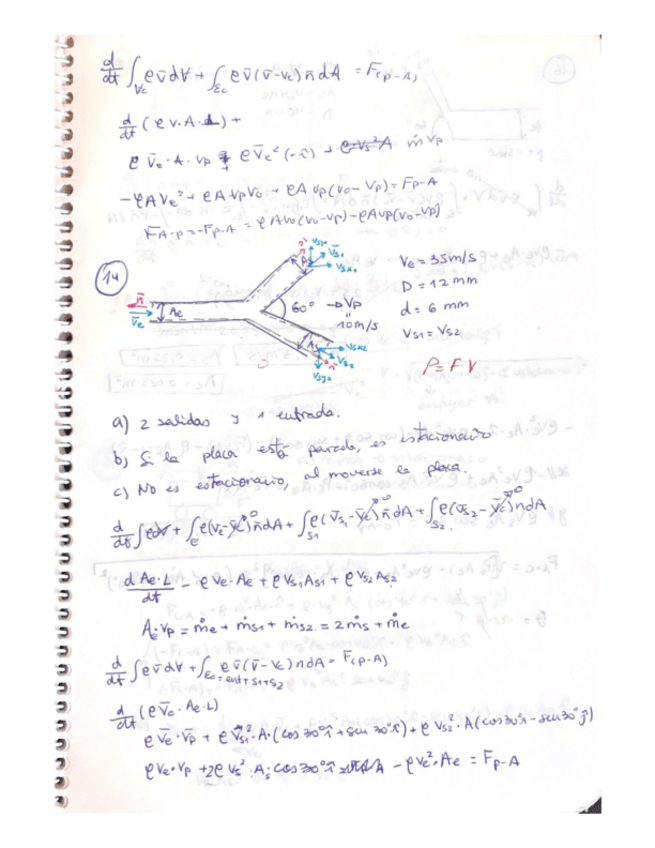 d/dt ∫_Vc ρ v̄ dV + ∫_Ec ρ v̄ (v̄ - v̄c) n̄ dA = F(p-A)
d/dt (ρ v. A. L) +
ρ v̄e . A . vp + ρ v̄e² (-i) + ṁ vp
- ρ A ve² + ρ A vp vo + ρ A vp (vo - vp) = F̄p-A
F̄A-p = -F̄p-A = ρ A vo (vo - vp) - ρ A vp (vo - vp)
14
n̄
v̄e
Ae
60°
→ Vp
10 m/s
Ve = 35 m/s
D = 12 mm
d = 6 mm
VS1 = VS2
P = F V
a) 2 salidas y 1 entrada.
b) Si la placa está parada, es estacionario
c) No es estacionario, al moverse la placa.
d/dt ∫ ρ dV + ∫_e ρ (v̄e - v̄c)⁰ n̄ dA + ∫_S1 ρ (v̄s1 - v̄c)⁰ n̄ dA + ∫_S2 ρ (v̄s2 - v̄c)⁰ n dA
d Ae·L / dt - ρ Ve · Ae + ρ VS1 AS1 + ρ VS2 AS2
Ae vp = ṁe + ṁs1 + ṁs2 = 2 ṁs + ṁe
d/dt ∫ ρ v̄ dV + ∫_Ec = ent + S1 + S2 ρ v̄ (v̄ - v̄c) n dA = F̄(p-A)
d/dt (ρ v̄e · Ae · L)
ρ v̄e · v̄p + ρ v̄s1² · A · (cos 30° i + sen 30° i) + ρ vs2² · A (cos 30° i - sen 30° j)
ρ ve · vp + 2 ρ vs² · As cos 30° i - ρ ve² · Ae = Fp-A